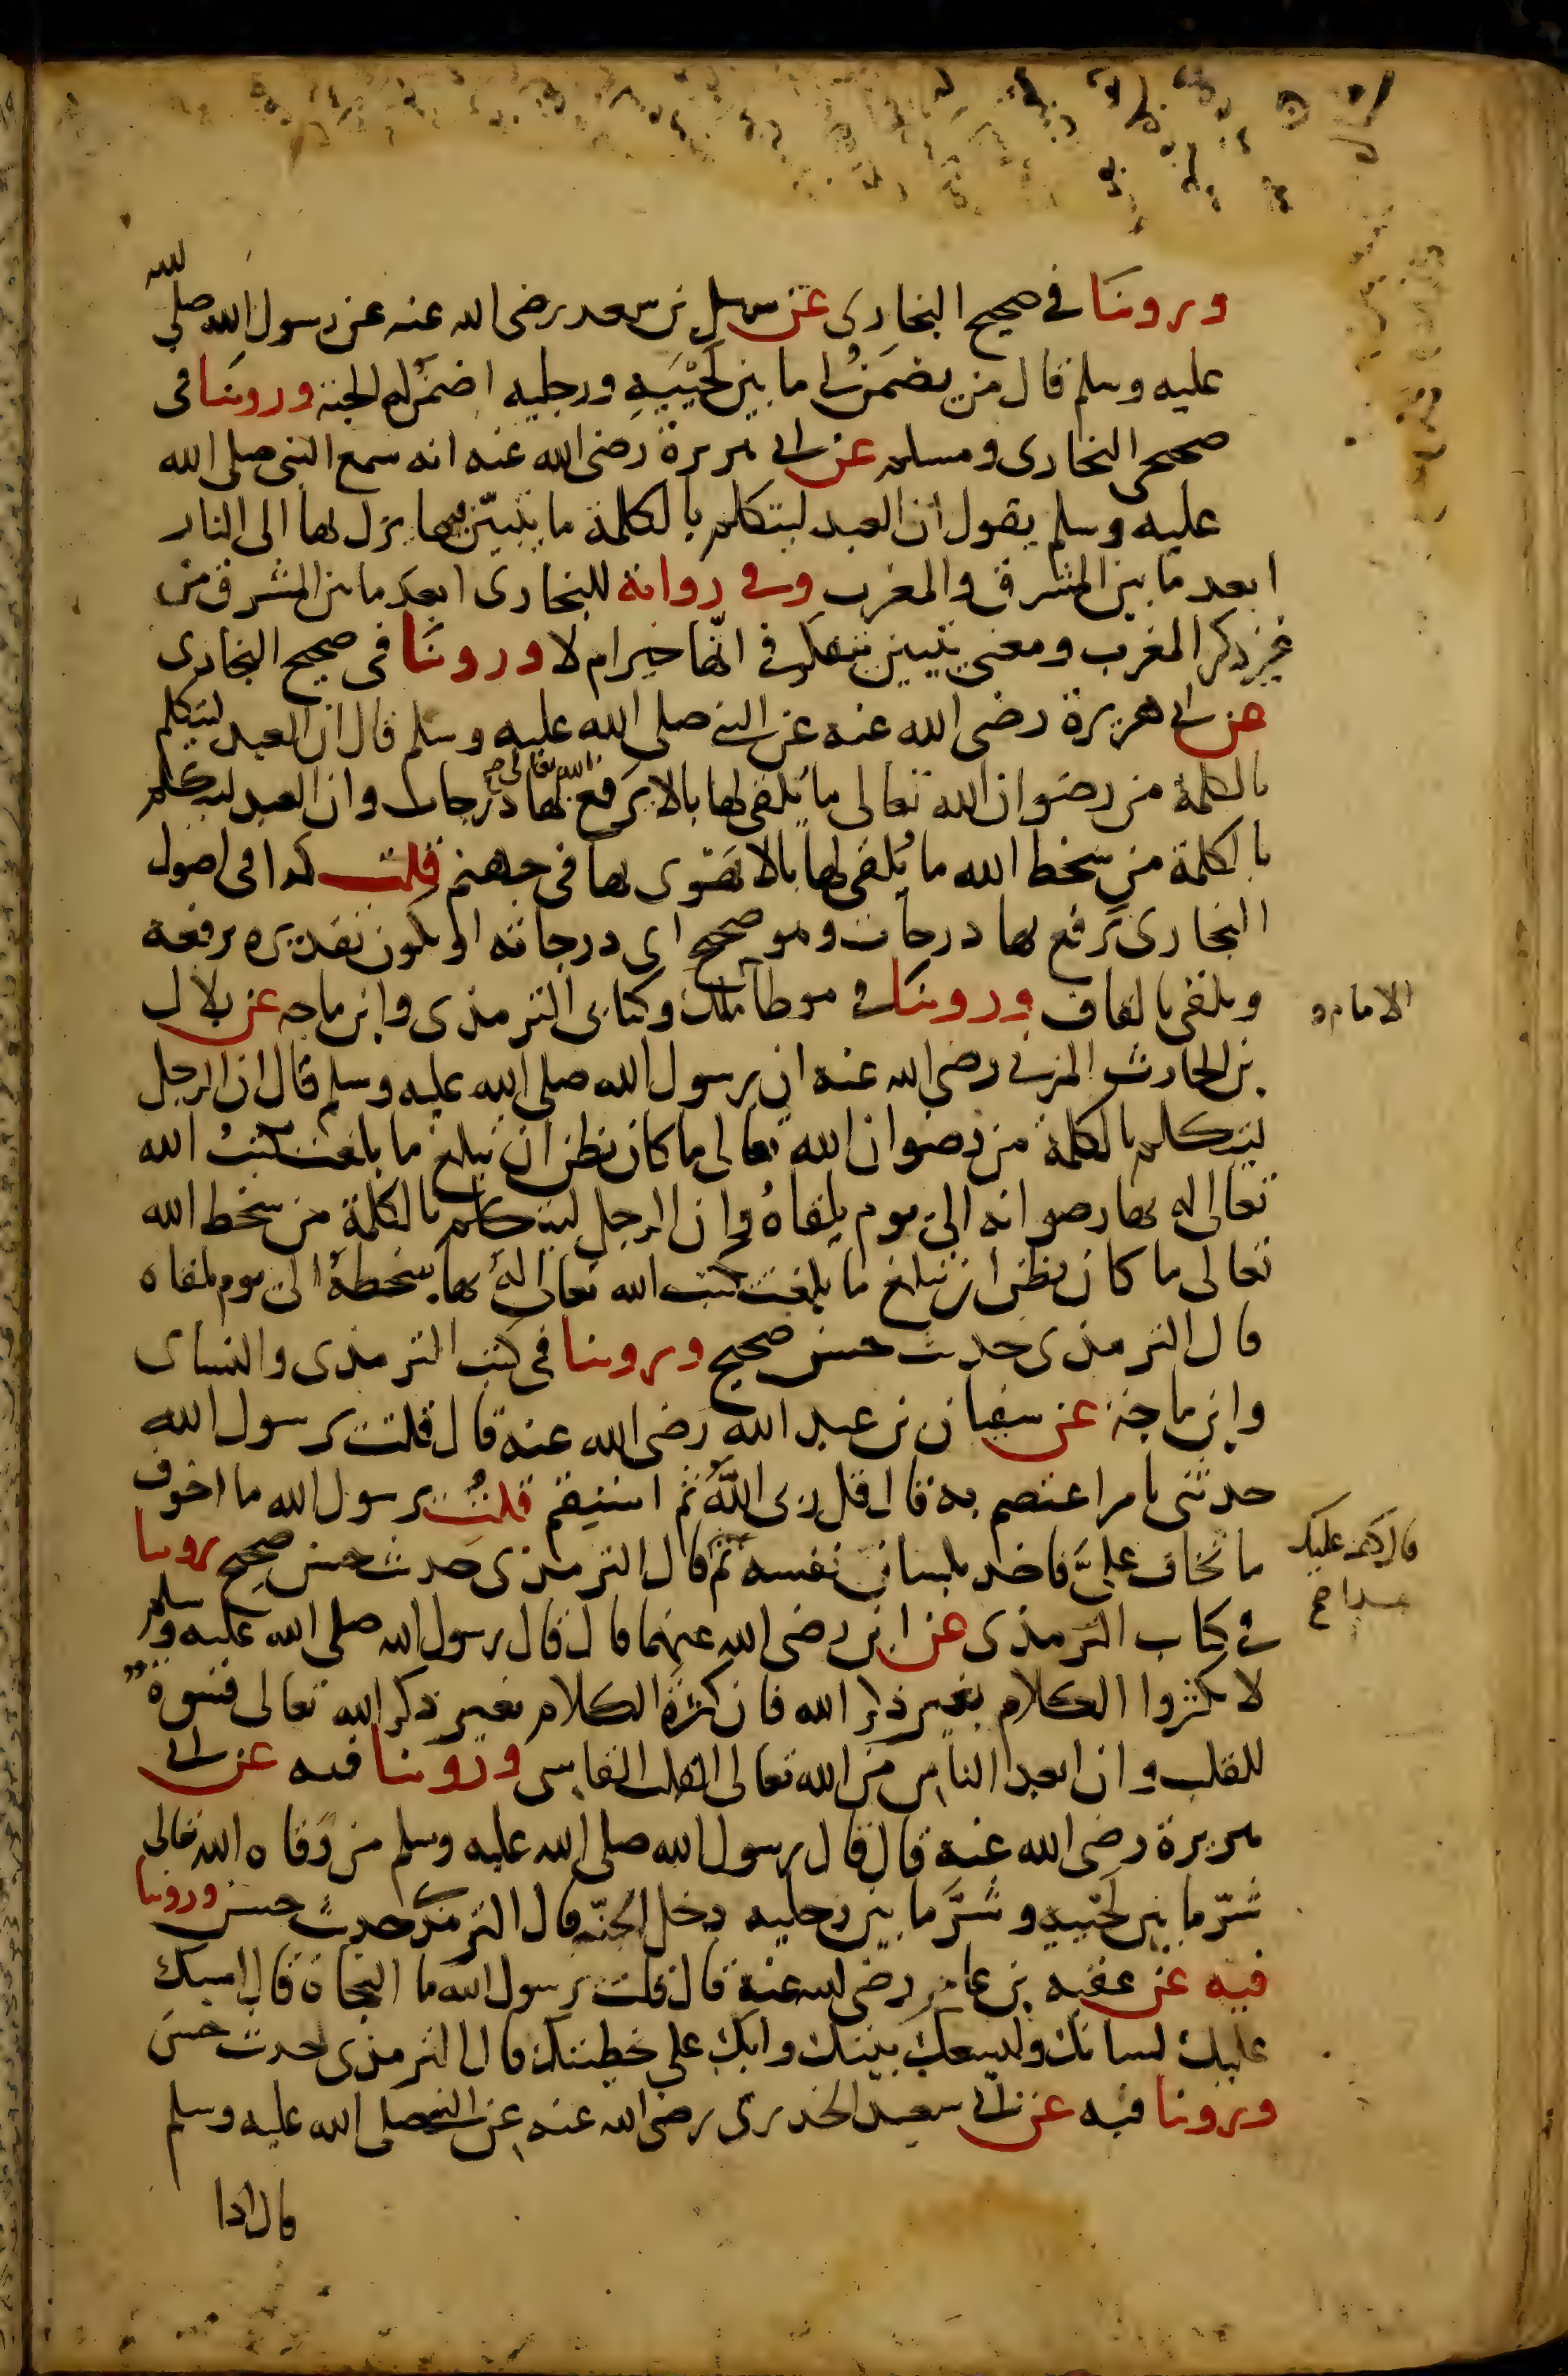 وروينا في صحيح البخاري عن سهل بن سعد رضي الله عنه عن رسول الله صلى الله
عليه وسلم قال من يضمن لي ما بين لَحْيَيْهِ ورجليه اضمن له الجنة وروينا في
صحيحي البخاري ومسلم عن ابي هريرة رضي الله عنه انه سمع النبي صلى الله
عليه وسلم يقول ان العبد ليتكلم بالكلمة ما يتبيّن فيها يزل بها الى النار
ابعد ما بين المشرق والمغرب وفي رواية للبخاري ابعد ما بين المشرق من
غير ذكر المغرب ومعنى يتبين يتفكر في انّها خير ام لا وروينا في صحيح البخاري
عن ابي هريرة رضي الله عنه عن النبي صلى الله عليه وسلم قال ان العبد ليتكلم
بالكلمة من رضوان الله تعالى ما يُلقي لها بالا يَرفع الله تعالى بها درجات وان العبد ليتكلم
بالكلمة من سخط الله ما يُلقي لها بالا يهوى بها في جهنم قلت كذا في اصول
البخاري يَرفع بها درجات وهو صحيح اي درجاته او يكون تقديره يرفعه
ويلقي بالقاف وروينا في موطأ مالك وكتابي الترمذي وابن ماجه عن بلال
الامام و
بن الحارث المزني رضي الله عنه ان رسول الله صلى الله عليه وسلم قال ان الرجل
ليتكلم بالكلمة من رضوان الله تعالى ما كان يظن ان تبلغ ما بلغت يكتبُ الله
تعالى له بها رضوانه الى يوم يلقاهُ وان الرجل ليتكلم بالكلمة من سخط الله
تعالى ما كان يظن ان تبلغ ما بلغت يكتب الله تعالى لهُ بها سخطهُ الى يوم يلقاه
قال الترمذي حديث حسن صحيح وروينا في كتب الترمذي والنساي
وابن ماجة عن سفيان بن عبد الله رضي الله عنه قال قلت يرسول الله
حدثني بامر اعتصم به قال قل ربي اللّهُ ثم استقم قلتُ يرسول الله ما اخوف
ما تخاف عليَّ فاخذ بلسان نفسه ثم قال الترمذي حديث حسن صحيح روينا
قال
هذا
في كتاب الترمذي عن ابن رضي الله عنهما قال قال رسول الله صلى الله عليه وسلم
لا تكثروا الكلام بغير ذكر الله فان كثرة الكلام بغير ذكر الله تعالى قسوة
للقلب وان ابعد الناس من الله تعالى القلب القاسي وروينا فيه عن ابي
هريرة رضي الله عنه قال قال رسول الله صلى الله عليه وسلم من وَقاه الله تعالى
شرّ ما بين لَحْييه وشرَّ ما بين رجليه دخل الجنّة قال الترمذي حديث حسن وروينا
فيه عن عقبه بن عامر رضي الله عنه قال قلت يرسول الله ما النجاة قال امسك
عليك لسانك وليسعك بيتك وابك على خطيئتك قال الترمذي حديث حسن
وروينا فيه عن ابي سعيد الخدري رضي الله عنه عن النبي صلى الله عليه وسلم
قال اذا